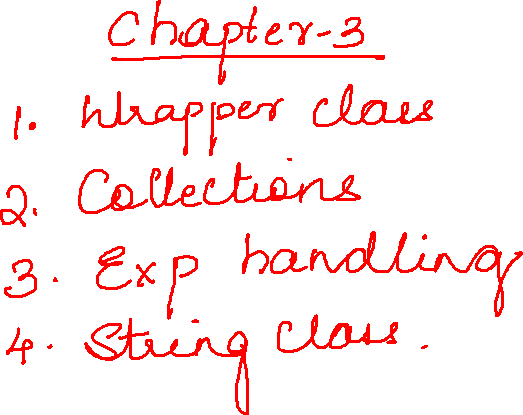 Chapter-3
1. Wrapper class
2. Collections
3. Exp handling
4. String class.